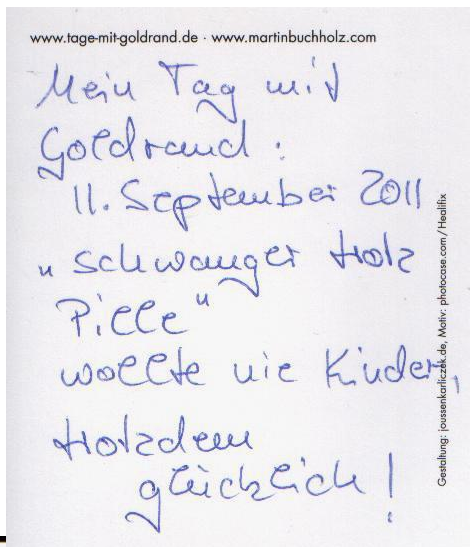 www.tage-mit-goldrand.de · www.martinbuchholz.com
Mein Tag mit
Goldrand :
11. September 2011
„schwanger trotz
Pille"
wollte nie Kinder,
trotzdem
glücklich!
Gestaltung: joussenkarliczek.de, Motiv: photocase.com/Healifix